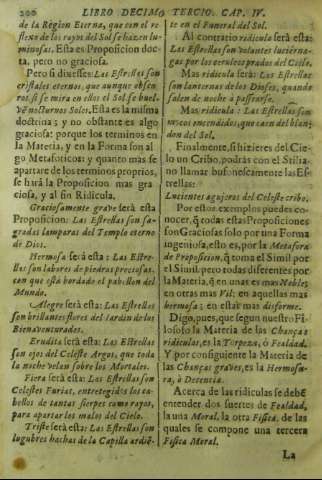 200 LIBRO DECIMO TERCIO. CAP. IV.
de la Region Eterea, que con el re
flexo de los rayos del Sol se hazen lu-
minosas. Esta es Proposicion doc-
ta, pero no graciosa.
Pero si dixesses: Las Estrellas son
cristales eternos, que aunque obscu-
ros, si se mira en ellos el Sol se buel-
vē nocturnos Soles, Esta es la misma
doctrina; y no obstante es algo
graciosa: porque los terminos en
la Materia, y en la Forma son al-
go Metaforicos: y quanto mas se
apartare de los terminos proprios,
se hará la Proposicion mas gra
ciosa, y al fin Ridicula.
Graciosamente grave será esta
Proposicion: Las Estrellas son sa-
gradas lamparas del Templo eterno
de Dios.
Hermosa será esta: Las Estre-
llas son labores de piedras preciosas,
con que está bordado el pabellon del
Mundo.
Alegre será esta: Las Estrellas
son brillantes flores del Iardin de los
Bienaventurados.
Erudita será esta: Las Estrellas
son ojos del Celeste Argos, que toda
la noche velan sobre los Mortales.
Fiera será esta: Las Estrellas son
Celestes Furias, entretegidos los ca-
bellos de tantas sierpes como rayos,
para apartar los malos del Cielo.
Triste será esta: Las Estrellas son
lugubres hachas de la Capilla ardiē-
te en el Funeral del Sol.
Al contrario ridicula será esta:
Las Estrellas son volantes luciérna-
gas por los ceruleos prados del Cielo.
Mas ridicula será: Las Estrellas
son lanternas de los Dioses, quando
salen de noche à passearse.
Mas ridicula: Las Estrellas son
huevos encendidos, que caen del
den del Sol.
Finalmente, si hizieres del Cie-
lo un Cribo, podrás con el Stilia-
no llamar bufonescamente las Es-
trellas:
Lucientes agujeros del Celeste cribo.
Por estos exemplos puedes co-
nocer, q̃ todas estas Proposiciones
son Graciosas solo por una Forma
ingeniosa, esto es, por la Metafora
de Proposicion, q̃ toma el Simil por
el Simil, pero todas diferentes por
la Materia, q̃ en unas es mas Noble;
en otras mas Vil: en aquellas mas
hermosa; en estas mas disforme.
Digo, pues, que segun nuestro Fi
losofo la Materia de las Chanças
ridiculas, es la Torpeza, ò Fealdad.
Y por consiguiente la Materia de
las Chanças graves, es la Hermosu-
ra, ò Decencia.
Acerca de las ridiculas se debē
entender dos suertes de Fealdad,
la una Moral, la otra Fisica, de las
quales se compone una tercera
Fisica Moral.
La